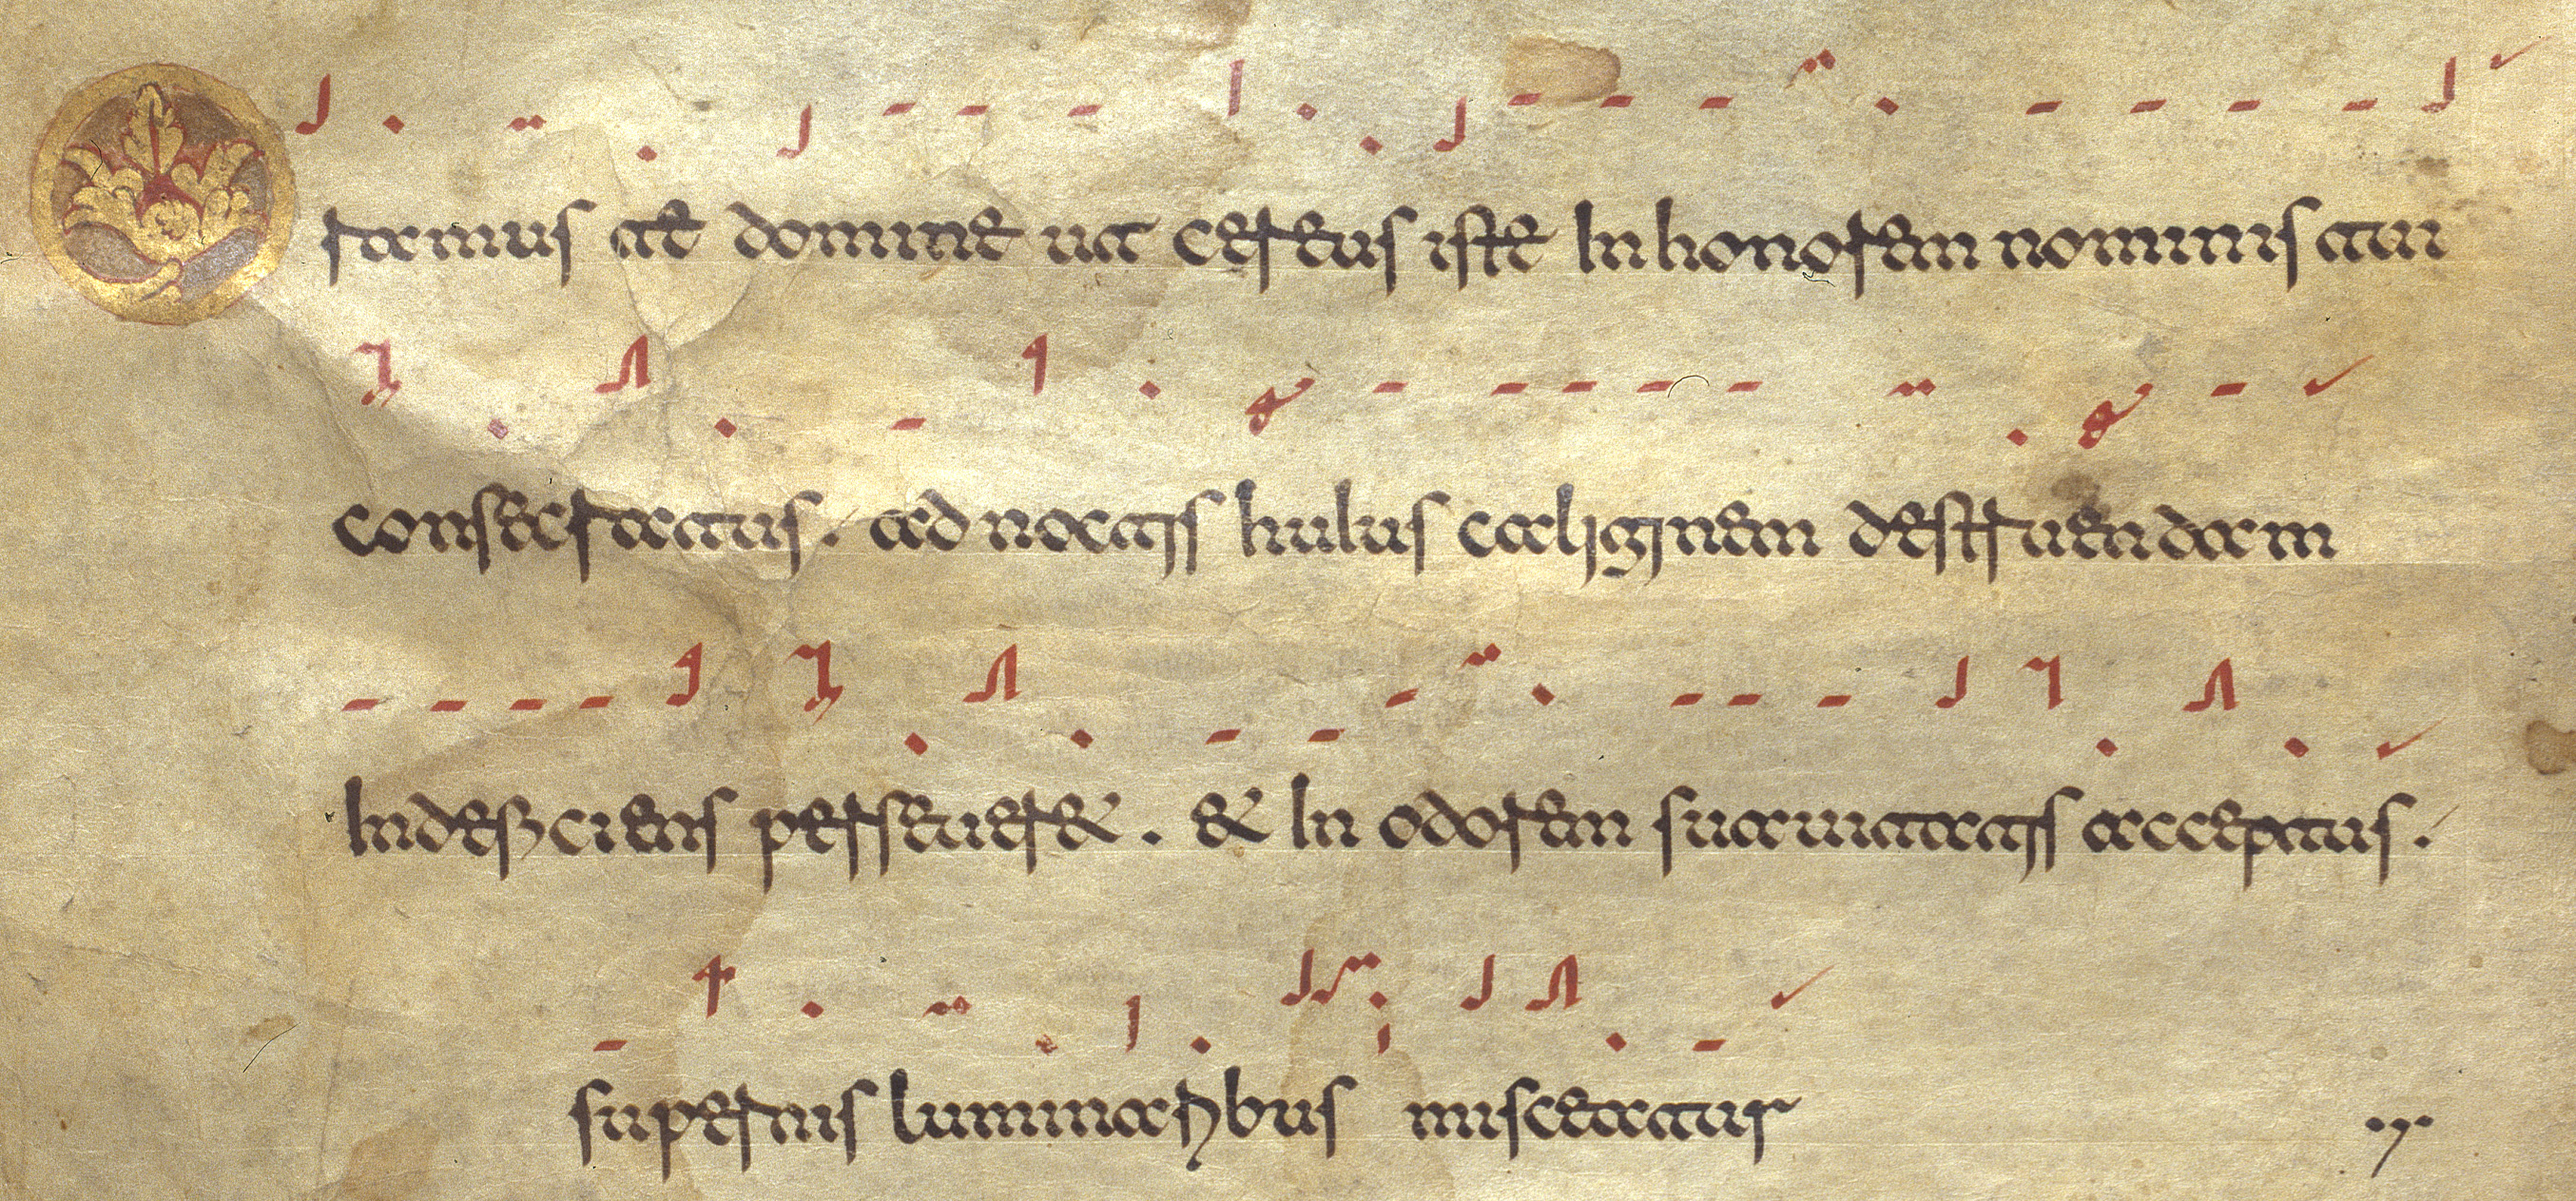 Oramus te domine ut cereus iste In honorem nominis tui
consecratus. ad noctis huIus caliginem destruendam
Indeficiens perseueret. et In odorem suauitatis acceptus.
supernis luminaribus misceatur